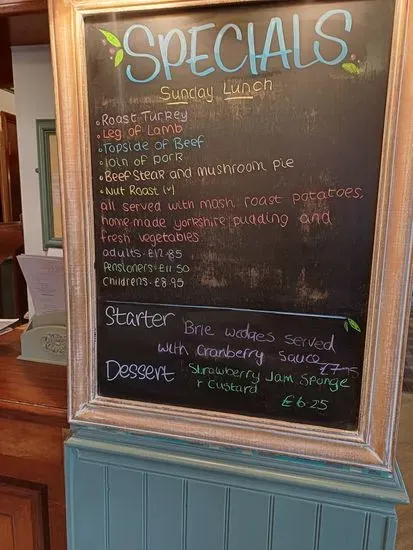 SPECIALS
Sunday Lunch
• Roast Turkey
• Leg of Lamb
• Topside of Beef
• Loin of pork
• Beef Steak and mushroom pie
• Nut Roast (v)
all served with mash, roast potatoes,
home-made yorkshire pudding and
fresh vegetables
adults • £12.85
Pensioners • £11.50
Childrens • £8.95
Starter Brie wedges served
with cranberry sauce
Dessert Strawberry Jam Sponge
+ Custard
£6.25